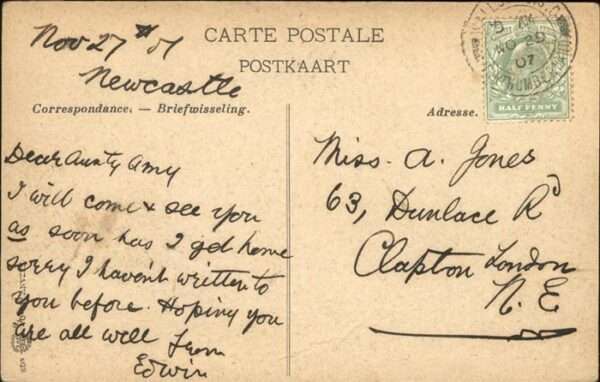 Nov 27th 07
Newcastle
CARTE POSTALE
POSTKAART
Correspondance. — Briefwisseling.
Adresse.
HALF PENNY
NO 29
07
Dear Aunty Amy
I will come & see you
as soon has I get home
sorry I haven't written to
you before. Hoping you
are all well from
Edwin
Miss. A. Jones
63, Dunlace Rd
Clapton London
N. E